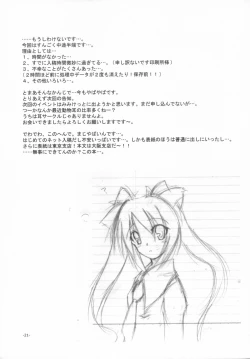 ……もうしわけないです…。
今回はすんごく中途半端です…。
理由としては…
１．時間がなかった…
２．すでに入稿時間微妙に過ぎてる…（申し訳ないです印刷所様）
３．不幸なことがたくさんあった…
（２時間ほど前に処理中のデータが２度も消えたり！保存前！！）
４．その他いろいろ…
とまあそんなかんじで…今もやばやばです…
とりあえず次回の告知。
次回のイベントはみみけっとに出ようかと思います。まだ申し込んでないですが…
つーか最近動物系の比率多くね…？
うちは耳サークルじゃありませんよ。
お会いできましたらよろしくお願いしますです～
でわでわ、このへんで。まじやばいんで…
はじめてのネット入稿で不安いっぱいです…。しかも表紙のほうは普通に出しにいったし…
さらに表紙は東京支店！本文は大阪支店だー！！
……無事にできてんのか？この本…
-21-